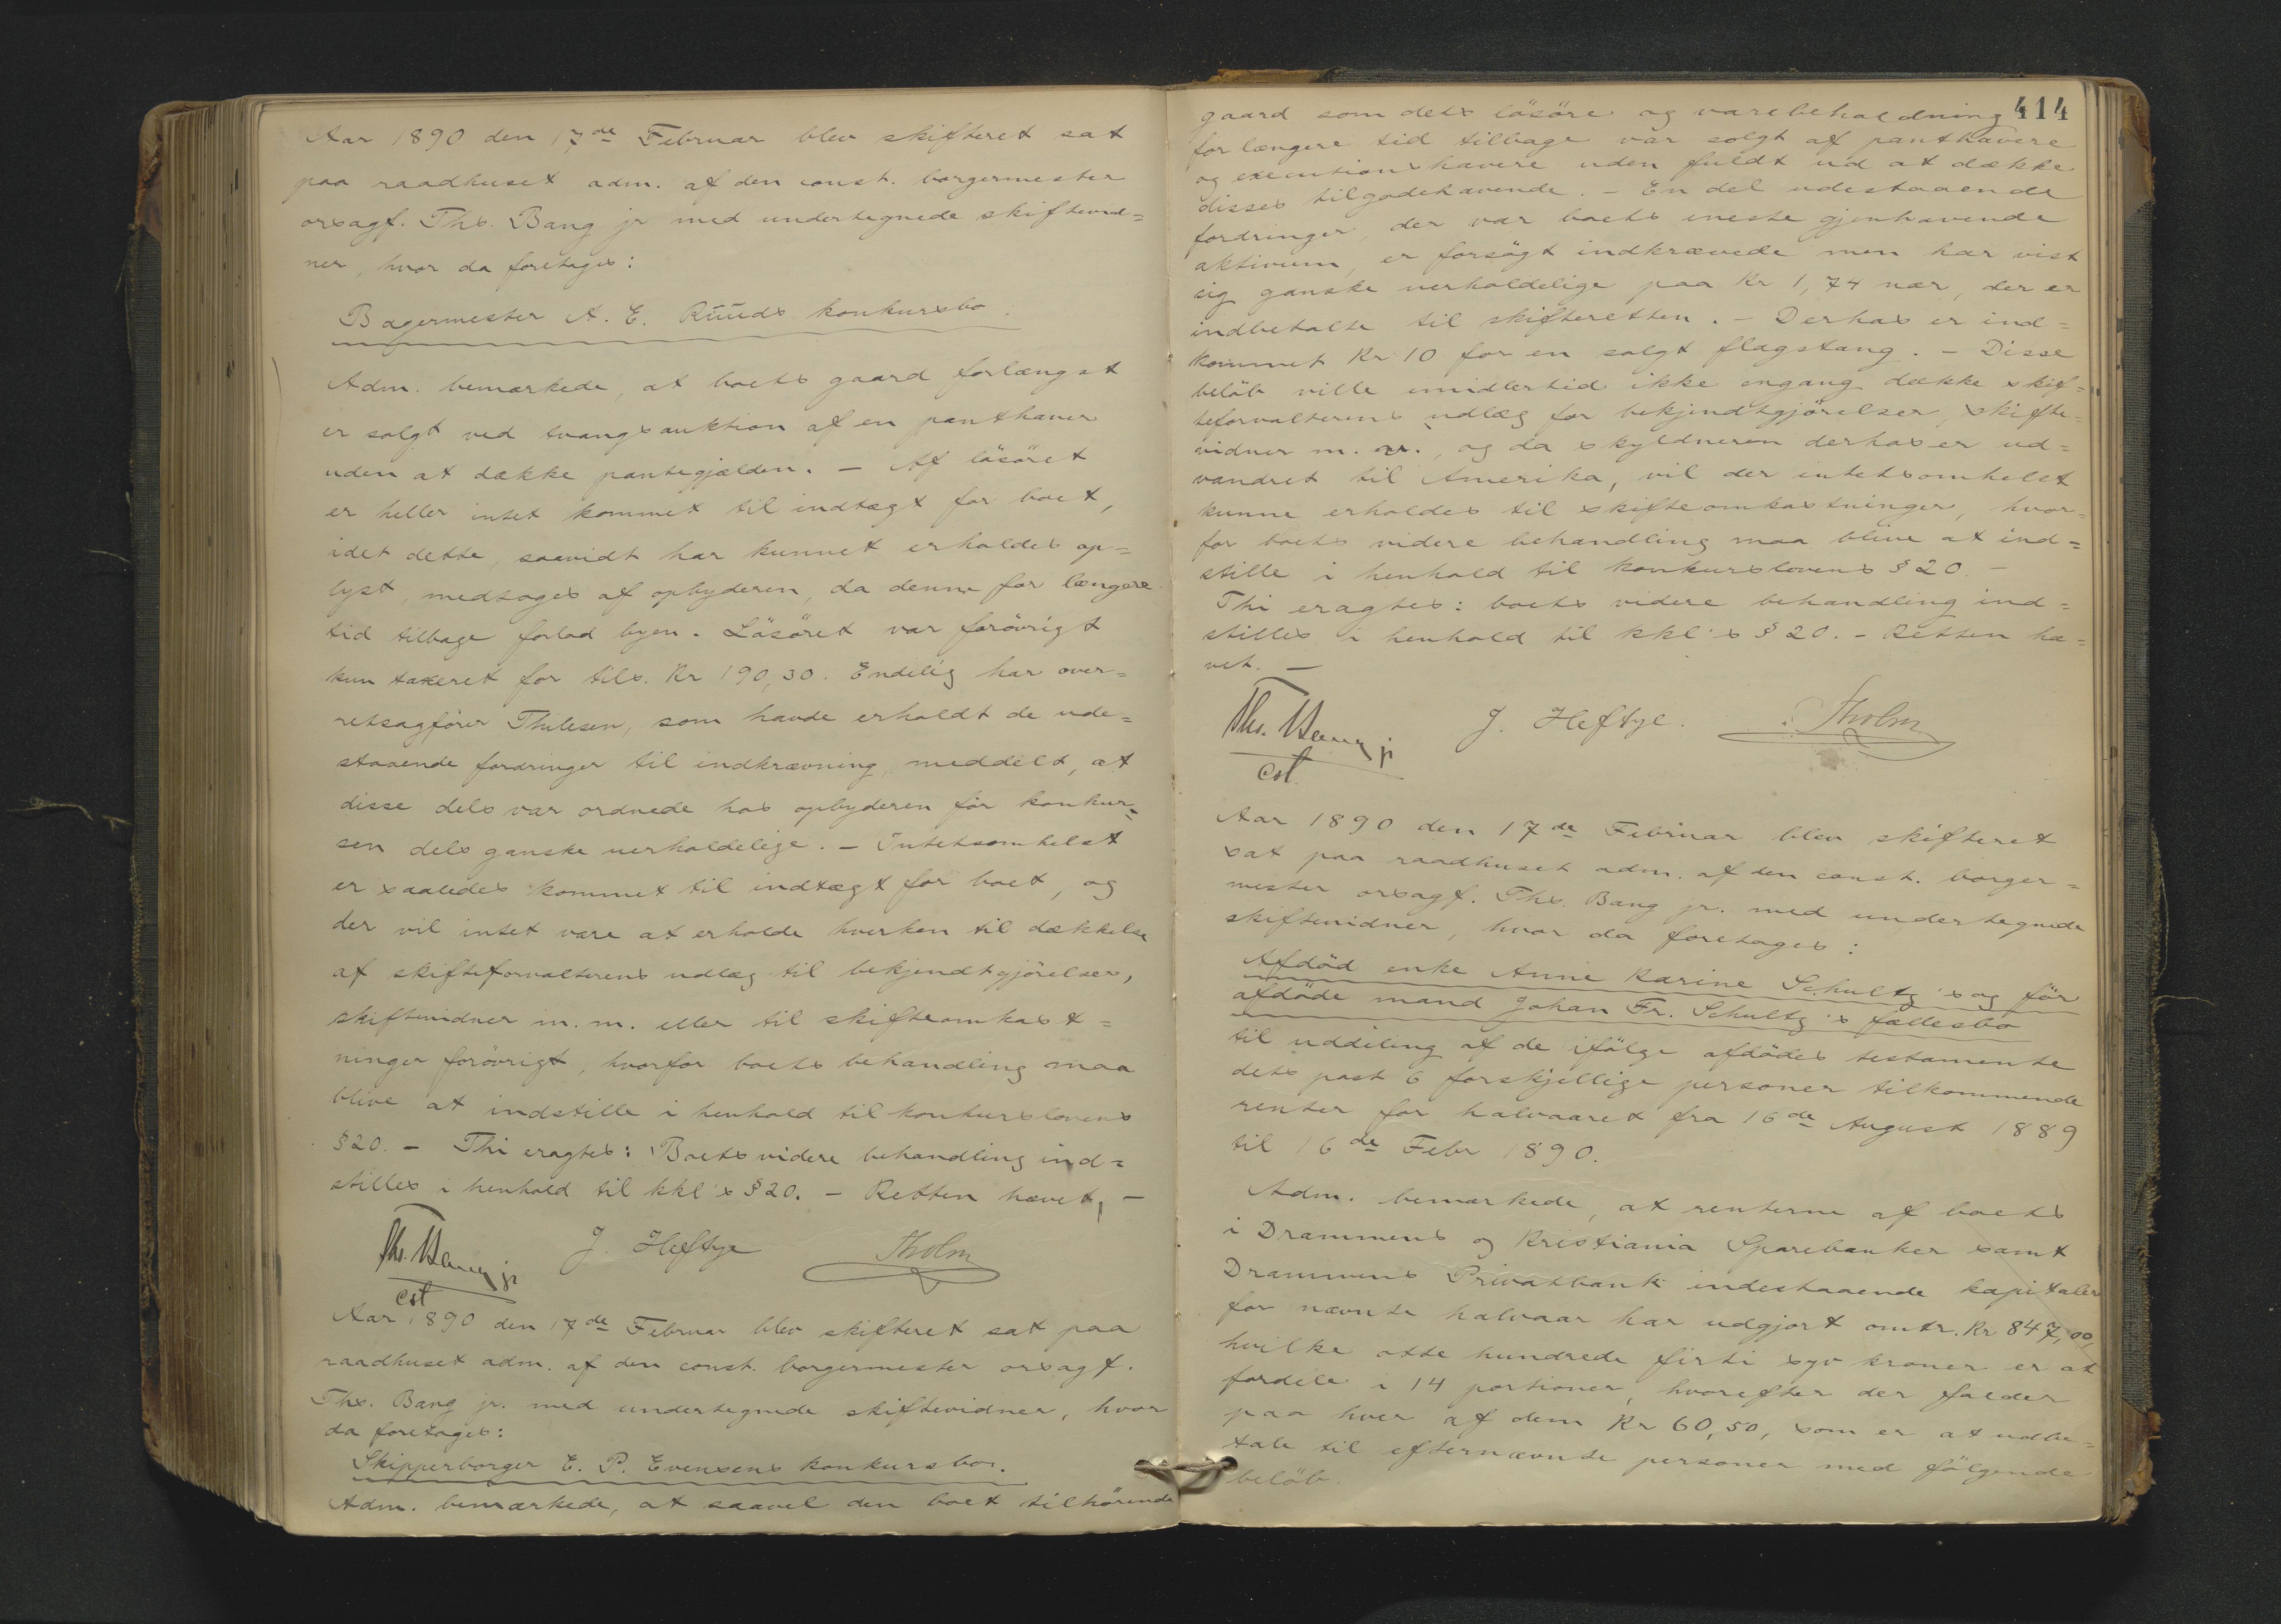 Aar 1890 den 17de Februar blev skifteret sat
paa raadhuset adm. af den const. borgermester
orsagf. Ths. Bang jr med undertegnede skiftevid=
ner, hvor da foretoges:
Bagermester A. E. Ruuds konkursbo.
Adm. bemærkede, at boets gaard forlængst
er solgt ved tvangsauktion af en panthaver
uden at dække pantegjælden. — Af løsøret
er heller intet kommet til indtægt for boet,
idet dette, saavidt har kunnet erholdes op=
lyst, medtoges af opbyderen, da denne for længere
tid tilbage forlod byen. Løsøret var forøvrigt
kun taxeret for tils. Kr 190,30. Endelig har over=
retsagfører Thilesen, som havde erholdt de ude=
staaende fordringer til indkrævning, meddelt, at
disse dels var ordnede hos opbyderen før konkur=
sen dels ganske uerholdelige. — Intetsomhelst
er saaledes kommet til indtægt for boet, og
der vil intet være at erholde hverken til dækkelse
af skifteforvalterens udlæg til bekjendtgjørelser,
skiftevidner m. m. eller til skifteomkost=
ninger forøvrigt, hvorfor boets behandling maa
blive at indstille i henhold til konkurslovens
§ 20. — Thi eragtes: Boets videre behandling ind=
stilles i henhold til kkl's § 20. — Retten hævet, —
Ths. Bang jr J. Heftye Tholm
cst
Aar 1890 den 17de Februar blev skifteret sat paa
raadhuset adm. af den const. borgermester orsagf.
Ths. Bang jr. med undertegnede skiftevidner, hvor
da foretoges:
Skipperborger E. P. Evensens konkursbo.
Adm. bemærkede, at saavel den boet tilhørende
414
gaard som dets løsøre og varebeholdning
for længere tid tilbage var solgt af panthavere
og executionshavere uden fuldt ud at dække
disses tilgodehavende. — En del udestaaende
fordringer, der var boets eneste gjenhavende
aktivum, er forsøgt indkrævede men har vist
sig ganske uerholdelige paa Kr 1,74 nær, der er
indbetalte til skifteretten. — Derhos er ind=
kommet Kr 10 for en solgt flagstang. — Disse
beløb ville imidlertid ikke engang dække skif=
teforvalterens udlæg for bekjendtgjørelser, skifte=
vidner m. m., og da skyldneren derhos er ud=
vandret til Amerika, vil der intetsomhelst
kunne erholdes til skifteomkostninger, hvor=
for boets videre behandling maa blive at ind=
stille i henhold til konkurslovens § 20. —
Thi eragtes: boets videre behandling ind=
stilles i henhold til kkl's § 20. — Retten hæ=
vet. —
Ths. Bang jr J. Heftye. Tholm
cst.
Aar 1890 den 17de Februar blev skifteret
sat paa raadhuset adm. af den const. borger=
mester orsagf. Ths. Bang jr. med undertegnede
skiftevidner, hvor da foretoges:
Afdød enke Anne Karine Schultz's og før
afdøde mand Johan Fr. Schultz's fællesbo
til uddeling af de ifølge afdødes testamente
dets post 6 forskjellige personer tilkommende
renter for halvaaret fra 16de August 1889
til 16de Febr 1890.
Adm. bemærkede, at renterne af boets
i Drammens og Kristiania Sparebanker samt
Drammens Privatbank indestaaende kapitaler
for nævnte halvaar har udgjort omtr. Kr 847,00,
hvilke otte hundrede firti syv kroner er at
fordele i 14 portioner, hvorefter der falder
paa hver af dem Kr 60,50, som er at udbe=
tale til efternævnte personer med følgende
beløb.